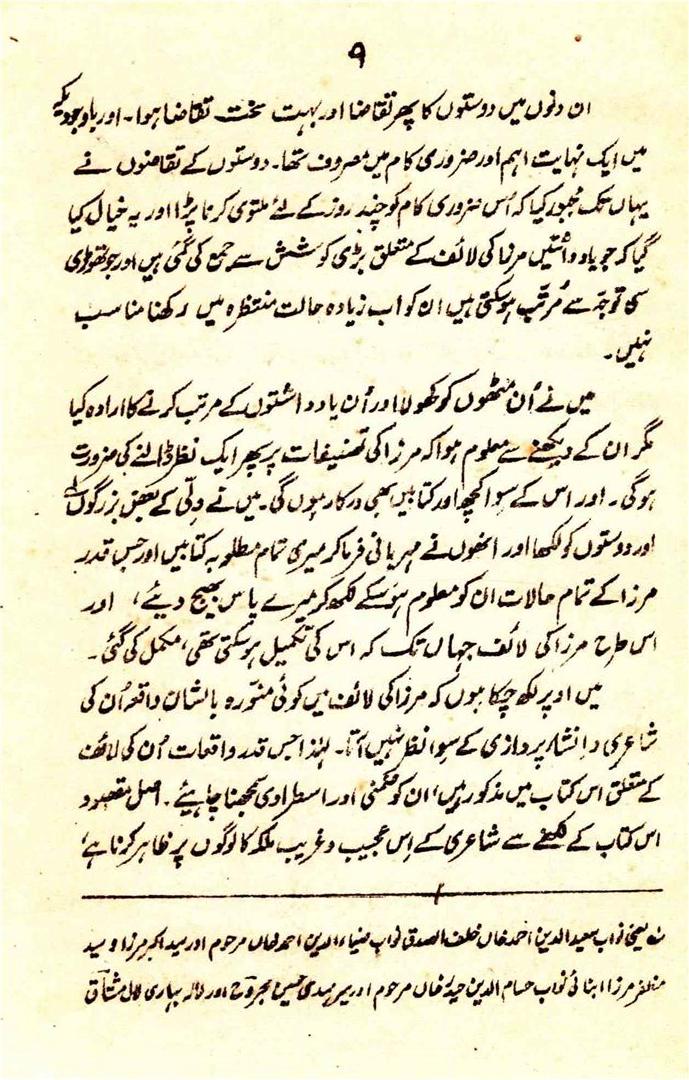 ۹
ان دنوں میں دوستوں کا پھر تقاضا اور بہت سخت تقاضا ہوا۔ اور باوجودیکہ
میں ایک نہایت اہم اور ضروری کام میں مصروف تھا۔ دوستوں کے تقاضوں نے
یہاں تک مجبور کیا کہ اُس ضروری کام کو چند روز کے لئے ملتوی کرنا پڑا اور یہ خیال کیا
گیا کہ جو یادداشتیں مرزا کی لائف کے متعلق بڑی کوشش سے جمع کی گئی ہیں اور جو تھوڑی
سی توجہ سے مُرتّب ہوسکتی ہیں ان کو اب زیادہ حالت منتظرہ میں رکھنا مناسب
نہیں۔
میں نے اُن مٹھوں کو کھولا اور اُن یادداشتوں کے مرتب کرنے کا ارادہ کیا
مگر ان کے دیکھنے سے معلوم ہوا کہ مرزا کی تصنیفات پر پھر ایک نظر ڈالنے کی ضرورت
ہوگی۔ اور اس کے سوا کچھ اور کتابیں بھی درکار ہوں گی۔ میں نے دلّی کے بعض بزرگوں
اور دوستوں کو لکھا اور انھوں نے مہربانی فرما کر میری تمام مطلوبہ کتابیں اور جس قدر
مرزا کے تمام حالات ان کو معلوم ہوسکے لکھ کر میرے پاس بھیج دیئے، اور
اس طرح مرزا کی لائف جہاں تک کہ اس کی تکمیل ہوسکتی تھی، مکمل کی گئی۔
میں اوپر لکھ چکا ہوں کہ مرزا کی لائف میں کوئی منوّرہ بالشان واقعہ اُن کی
شاعری و انشا پردازی کے سوا نظر نہیں آتا۔ لہٰذا جس قدر واقعات اُن کی لائف
کے متعلق اس کتاب میں مذکور ہیں، ان کو ضمنی اور استطرادی سمجھنا چاہیے۔ اصل مقصود
اس کتاب کے لکھنے سے شاعری کے اِس عجیب و غریب ملکہ کا لوگوں پر ظاہر کرنا ہے،
یعنی نواب سعید الدین احمد خاں خلف الصدق نواب ضیاء الدین احمد خاں مرحوم اور سید اکبر مرزا و سید
مظفر مرزا ابنائے نواب حسام الدین حیدر خاں مرحوم اور میر مہدی حسین مجروح اور لالہ بہاری لال مشتاق